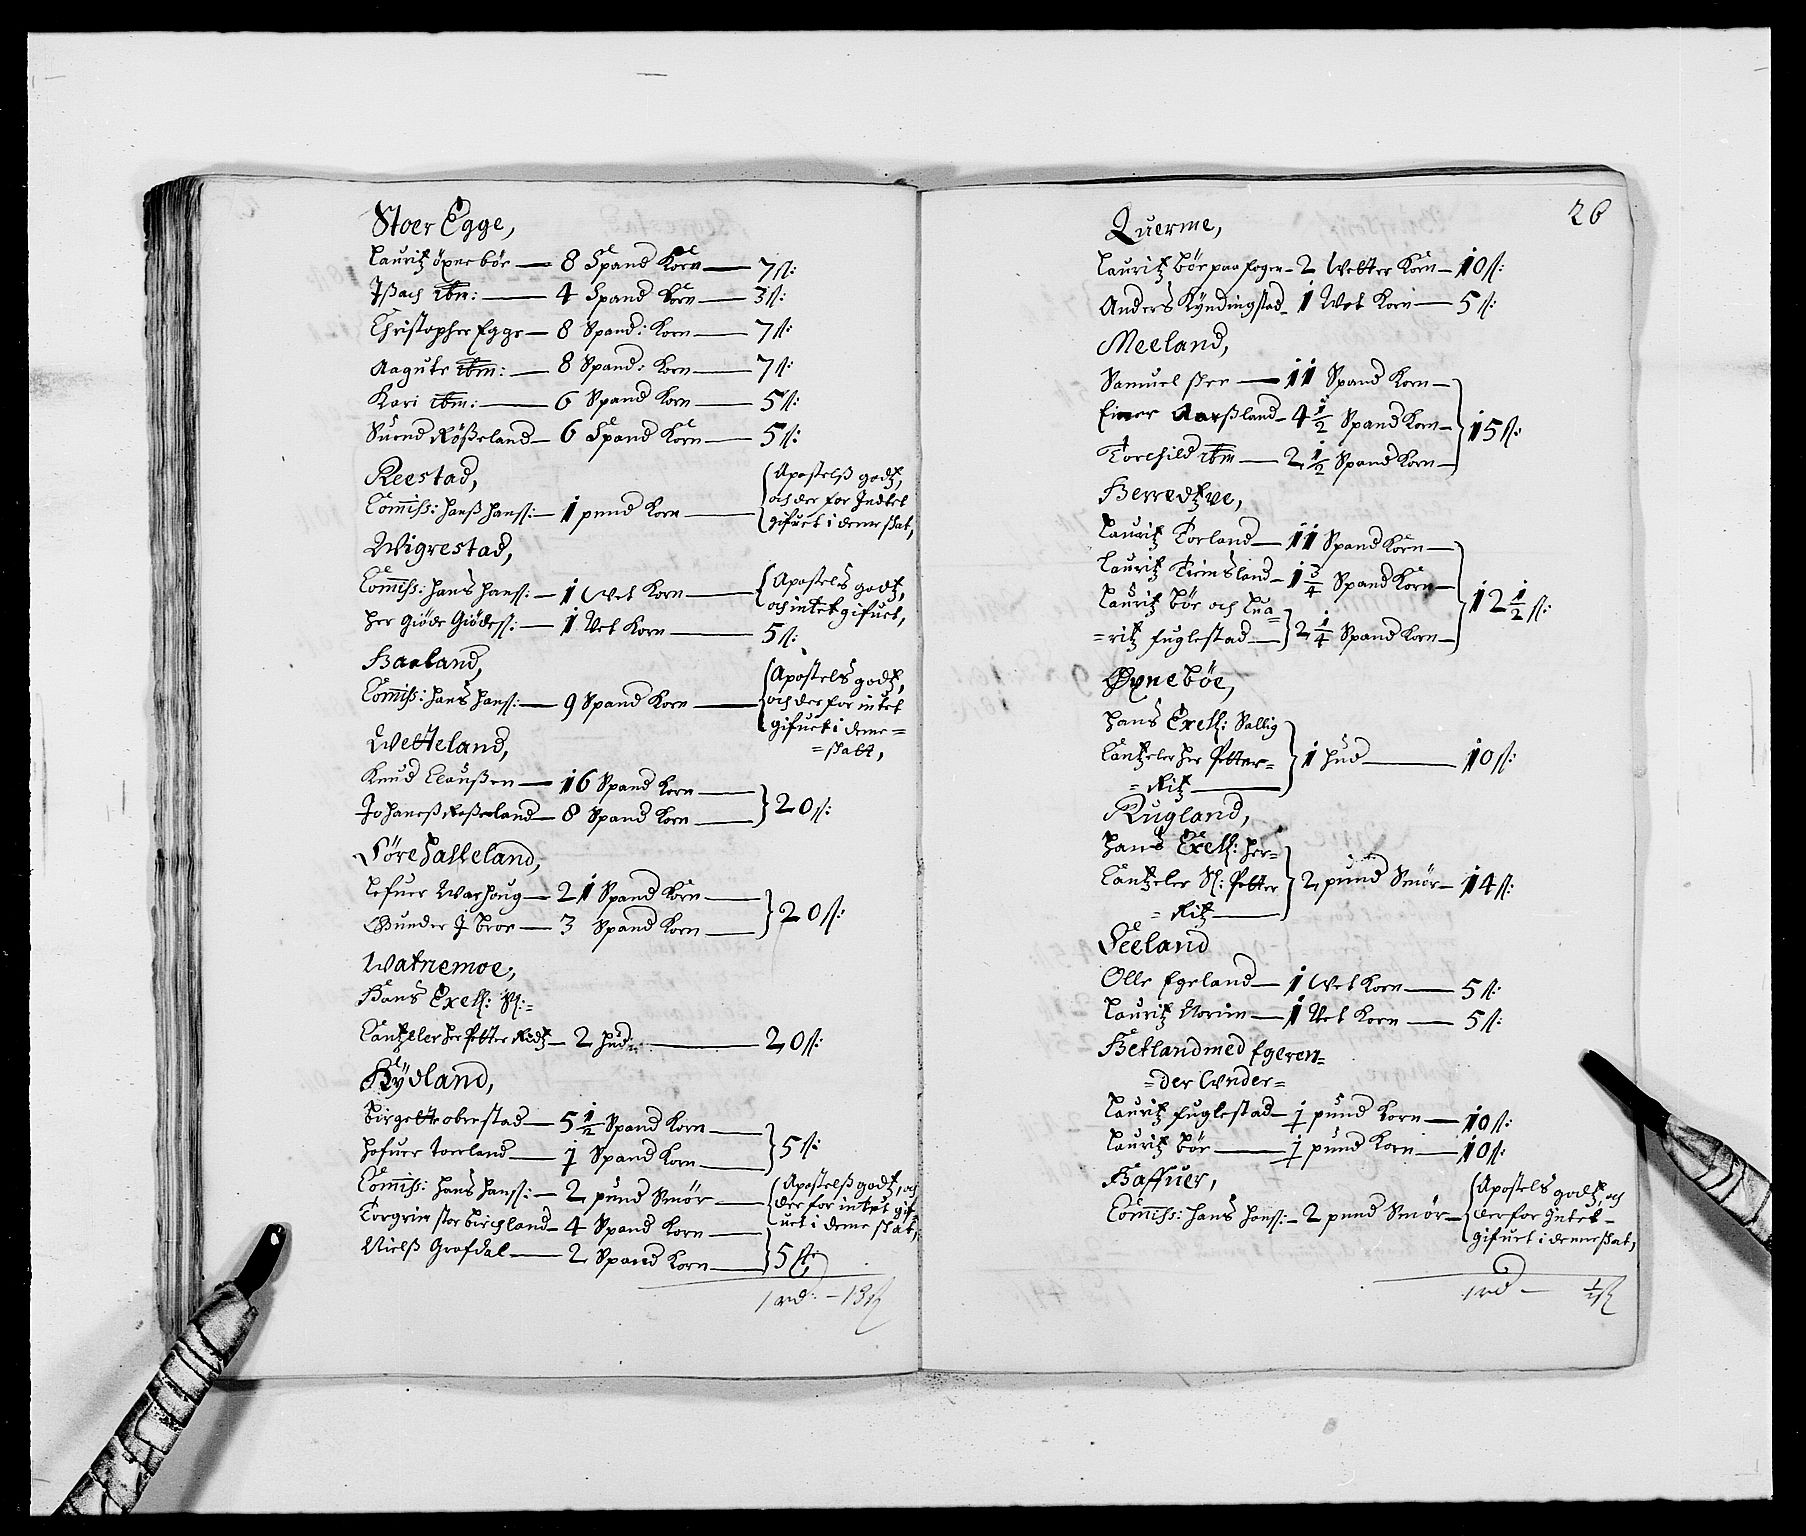 Stoer Egge,
Lauritz öxnebör — 8 Spand Korn — 7 ß:
Jßach ibm: — 4 Spand Korn — 3 ß:
Christopher Egge — 8 Spand: Korn — 7 ß:
Aagute ibm: — 8 Spand: Korn — 7 ß:
Kari ibm: — 6 Spand Korn — 5 ß:
Suend Rößeland — 6 Spand Korn — 5 ß:
Reestad,
Com̄iss: Hanß Hanss: — 1 pund Korn — Apostelß godtz,
och der for Indtet
gifuet i denne skat,
Wigrestad,
Com̄iss: Hans Hanss: — 1 Vet Korn — Apostels godtz,
och intet gifuet,
Her Giöde Giödess: — 1 Vet Korn — 5 ß:
Haaland,
Com̄iss: Hans Hanss: — 9 Spand Korn — Apostels godtz,
och der for intet
gifuet i denne =
= skatt,
Wetteland,
Knud Claußen — 16 Spand Korn —
Johaneß Roßeland — 8 Spand Korn — 20 ß:
Söre Hatteland,
Lefuer Warhoug — 21 Spand Korn —
Gunder J bror — 3 Spand Korn — 20 ß:
Watnemoe,
Hans Exell: Sl: =
Cantzeler Her Petter Redtz — 2 hud: — 20 ß:
Kÿdland,
Birgette obrestad — 5 1/2 Spand Korn —
Hofuer Torland — 1 Spand Korn — 5 ß:
Com̄iss: Hans Hanss: — 2 pund Smör — Apostelß godtz, och
der for intet gif
uet i denne skat,
Torgrim stor birchland — 4 Spand Korn —
Nielß Grofdal — 2 Spand Korn — 5 ß:
1 rd: — 13 ß
26
Querme,
Lauritz bör paa fogen — 2 Vetter Korn — 10 ß:
Anders Kÿndingstad — 1 Vet Korn — 5 ß:
Meeland,
Samuel — 11 Spand Korn —
Einer Aarßland — 4 1/2 Spand Korn — 15 ß:
Torchild ibm — 2 1/2 Spand Korn —
Herredtzve,
Lauritz Torland — 11 Spand Korn —
Lauritz Tiemsland — 1 3/4 Spand Korn — 12 1/2 ß:
Lauritz bör och Lua =
= ritz fuglestad — 2 1/4 Spand Korn —
Øxnebøe,
Hans Exell: Sallig
Cantzeler Her Petter = 1 hud — 10 ß:
= Ritz —
Rugland,
Hans Exell: Her =
Cantzeler Sl: Petter 2 pund Smör — 14 ß:
= Ritz —
Seeland
Olle Egeland — 1 Vet Korn — 5 ß:
Lauritz Norim — 1 Vet Korn — 5 ß:
Hetland med Egeren =
= der Vnder =
Lauritz fuglestad — 1 pund Korn — 10 ß:
Lauritz bör — 1 pund Korn — 10 ß:
Haffuer,
Com̄iss: Hans Hanss: — 2 pund Smör — Apostels godtz, och
der for Intet —
gifuet i denne skat,
1 rd — 1/2 ß